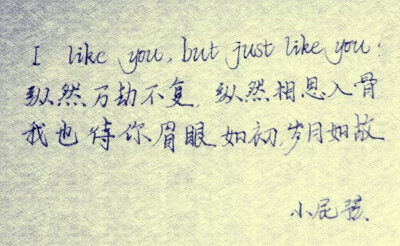 I like you, but just like you.
纵然万劫不复，纵然相思入骨
我也待你眉眼如初，岁月如故
小屁孩